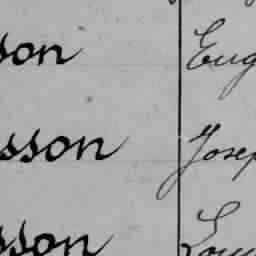 son Eug
sson Josep
sson Lou